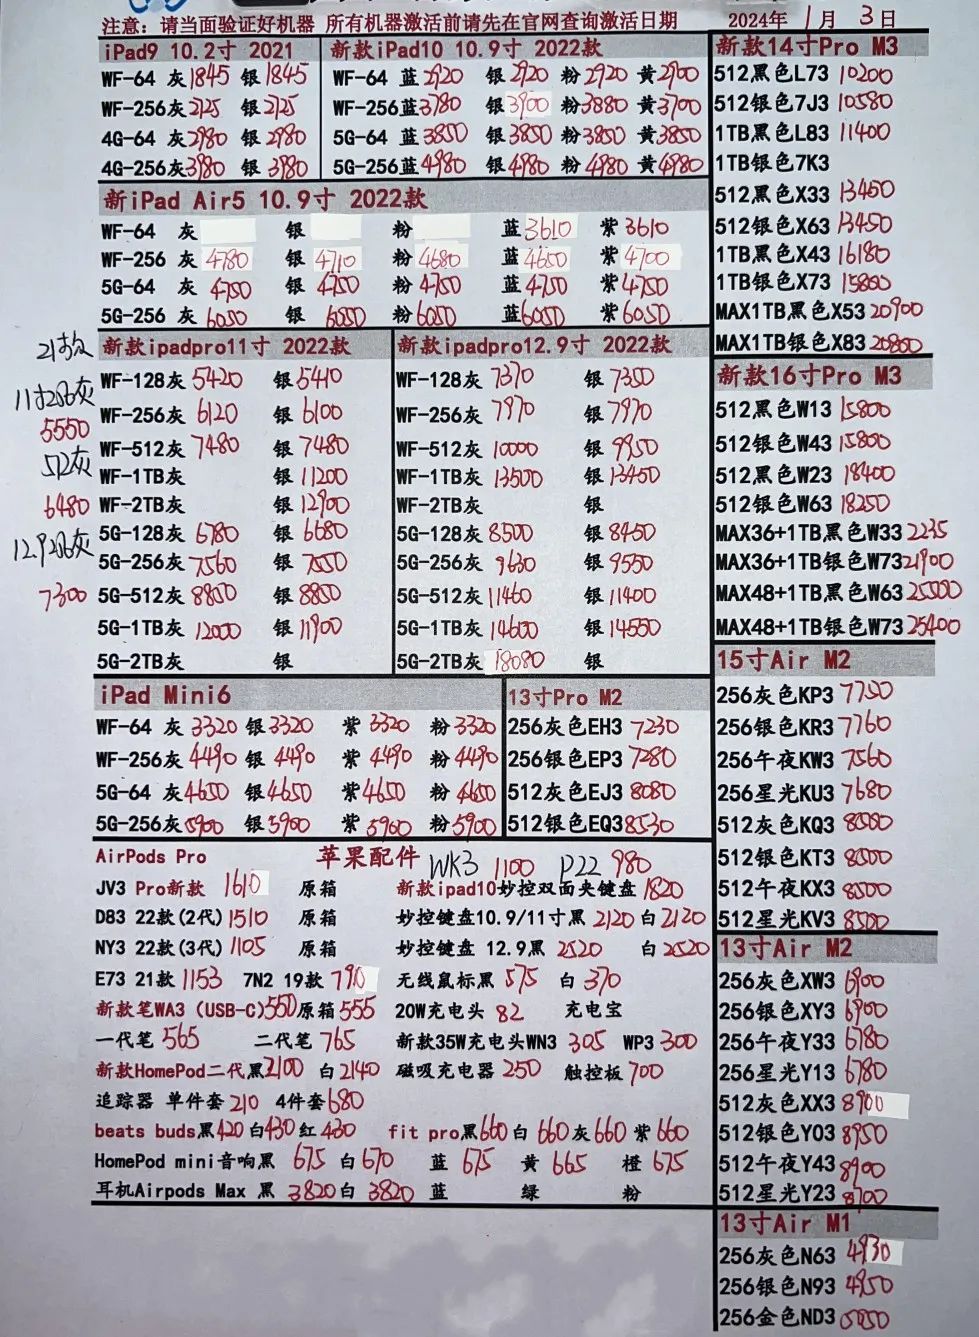 注意：请当面验证好机器 所有机器激活前请先在官网查询激活日期 2024年 1月 3日
iPad9 10.2寸 2021
WF-64 灰1845 银1845
WF-256灰2125 银2125
4G-64 灰2980 银2980
4G-256灰3980 银3980
新款iPad10 10.9寸 2022款
WF-64 蓝2920 银2920 粉2920 黄2900
WF-256蓝3780 银3900 粉3880 黄3700
5G-64 蓝3850 银3850 粉3850 黄3850
5G-256蓝4980 银4980 粉4980 黄4980
新iPad Air5 10.9寸 2022款
WF-64 灰 银 粉 蓝3610 紫3610
WF-256 灰4780 银4710 粉4680 蓝4650 紫4700
5G-64 灰4750 银4750 粉4750 蓝4750 紫4750
5G-256 灰6050 银6050 粉6050 蓝6050 紫6050
21款
11寸256灰
5550
512灰
6480
12.9 256灰
7300
新款ipadpro11寸 2022款
WF-128灰5420 银5410
WF-256灰6120 银6100
WF-512灰7480 银7480
WF-1TB灰 银11200
WF-2TB灰 银12900
5G-128灰6780 银6680
5G-256灰7560 银7550
5G-512灰8850 银8850
5G-1TB灰12000 银11900
5G-2TB灰 银
新款ipadpro12.9寸 2022款
WF-128灰7370 银7350
WF-256灰7970 银7970
WF-512灰10000 银9950
WF-1TB灰13500 银13450
WF-2TB灰 银
5G-128灰8500 银8450
5G-256灰9630 银9550
5G-512灰11460 银11400
5G-1TB灰14600 银14550
5G-2TB灰18080 银
iPad Mini6
WF-64 灰3320 银3320 紫3320 粉3320
WF-256灰4490 银4490 紫4490 粉4490
5G-64 灰4650 银4650 紫4650 粉4650
5G-256灰5900 银5900 紫5900 粉5900
13寸Pro M2
256灰色EH3 7230
256银色EP3 7280
512灰色EJ3 8080
512银色EQ3 8530
AirPods Pro 苹果配件 WK3 1100 P22 980
JV3 Pro新款 1610 原箱 新款ipad10妙控双面夹键盘1820
D83 22款(2代)1510 原箱 妙控键盘10.9/11寸黑2120白2120
NY3 22款(3代)1105 原箱 妙控键盘 12.9黑 2520 白2520
E73 21款1153 7N2 19款790 无线鼠标黑575 白370
新款笔WA3 (USB-C)550原箱555 20W充电头 82 充电宝
一代笔565 二代笔765 新款35W充电头WN3 305 WP3 300
新款HomePod二代黑2100 白2140 磁吸充电器250 触控板700
追踪器 单件套210 4件套680
beats buds黑420白430红430 fit pro黑660白660灰660紫660
HomePod mini音响黑 675 白670 蓝675 黄665 橙675
耳机Airpods Max 黑 3820白 3820 蓝 绿 粉
新款14寸Pro M3
512黑色L73 10200
512银色7J3 10580
1TB黑色L83 11400
1TB银色7K3
512黑色X33 13450
512银色X63 13450
1TB黑色X43 16180
1TB银色X73 15860
MAX1TB黑色X53 20900
MAX1TB银色X83 20800
新款16寸Pro M3
512黑色W13 15800
512银色W43 15800
512黑色W23 18400
512银色W63 18250
MAX36+1TB黑色W33 2235
MAX36+1TB银色W73 21900
MAX48+1TB黑色W63 25000
MAX48+1TB银色W73 25400
15寸Air M2
256灰色KP3 7750
256银色KR3 7760
256午夜KW3 7560
256星光KU3 7680
512灰色KQ3 8500
512银色KT3 8500
512午夜KX3 8500
512星光KV3 8500
13寸Air M2
256灰色XW3 6900
256银色XY3 6900
256午夜Y33 6780
256星光Y13 6780
512灰色XX3 8900
512银色Y03 8950
512午夜Y43 8900
512星光Y23 8700
13寸Air M1
256灰色N63 4930
256银色N93 4950
256金色ND3 5050